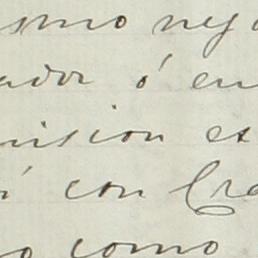 smo neg
ador ó en
mision es
ó con Cre
o como